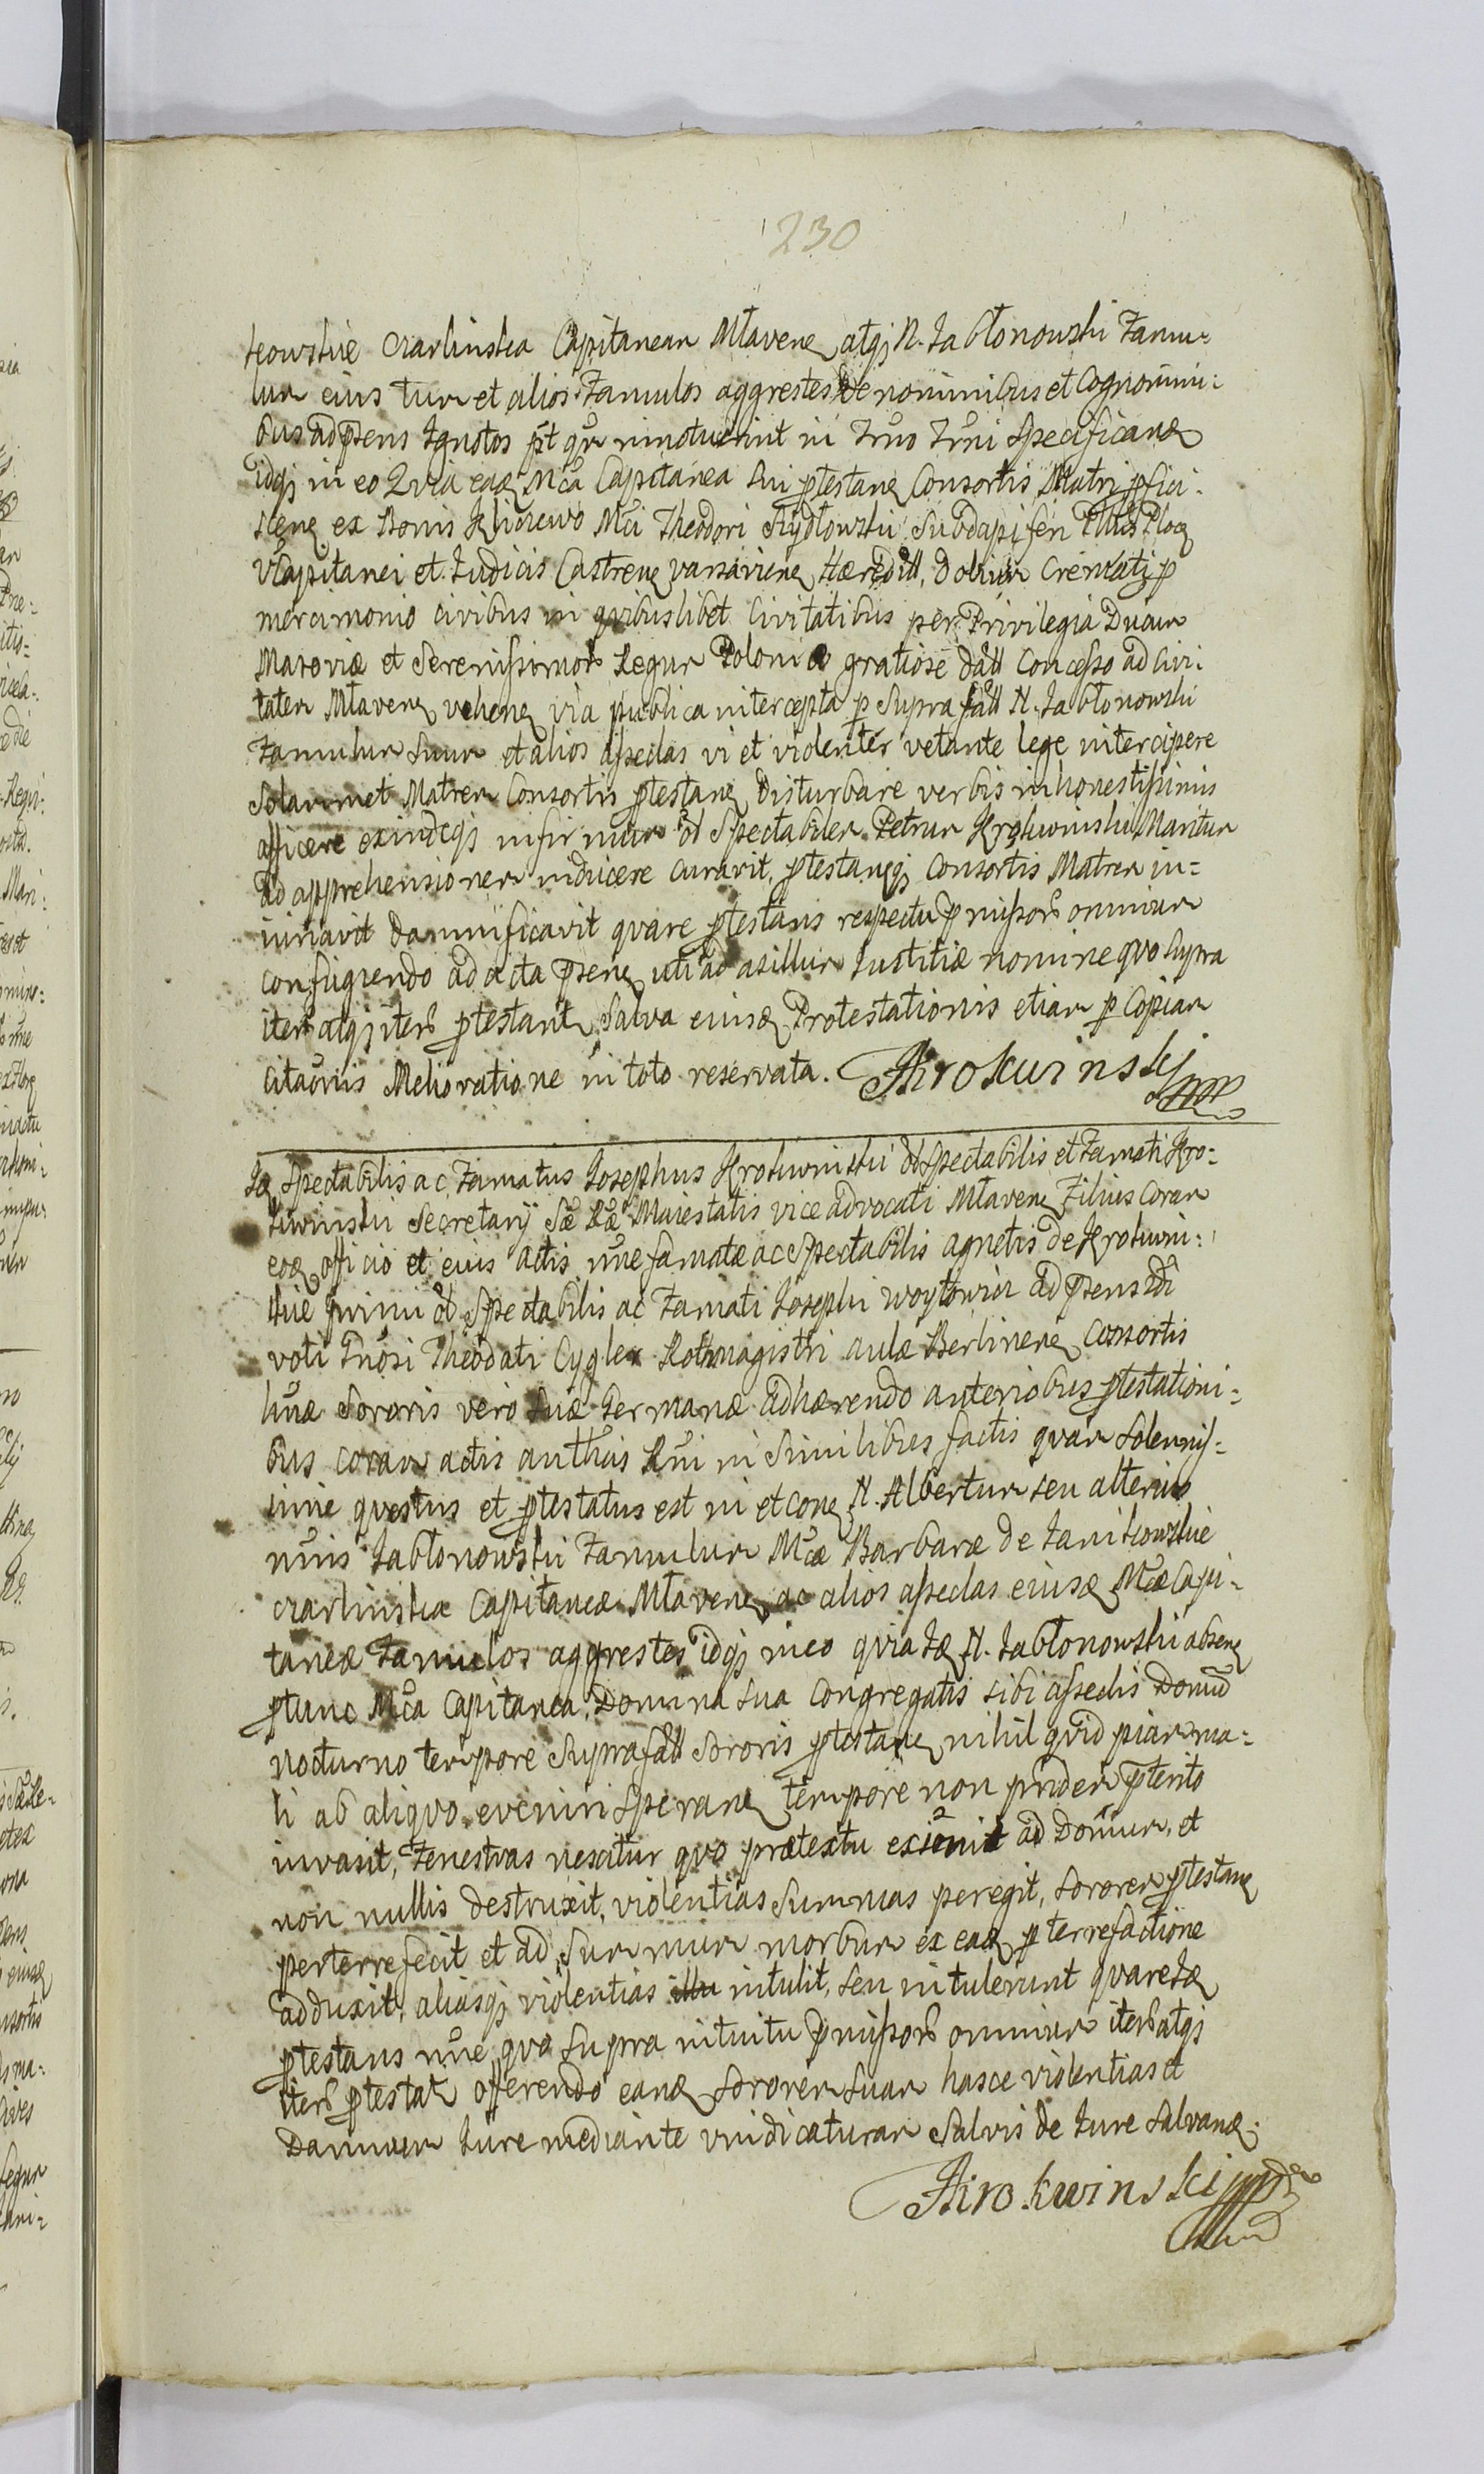 230
kowskie Czarlinska Capitaneam Młavens atqꝫ N. Jabłonowski Famu-
lum eius tum et alios Famulos aggrestes de nominibus et Cognomini-
bus ad pñens Ignotos pt qñ innotuerint in Trno Trni Specificand
idqꝫ in eo Qvia eadem Mca Capitanea sui ptestans Consortis Matri pfici-
scens ex Bonis Kliczewo Mci Theodori Szydłowski Subdapiferi Pttis Ploc
VCapitanei et Judicis Castrens varsaviens Hæreditt, dolium Cremati p
mercimonio civibus in qvibuslibet Civitatibus per Privilegia Ducum
Masoviæ et Serenissimor Regum Poloniæ gratiose datt Concesso ad Civi-
tatem Młavens vehens via publica intercepta p Supra fatt N. Jabłonowski
Famulum Suum et alios assedas vi et violenter vetante lege intercipere
Solammet Matrem Consortis ptestans disturbare verbis inhonestissimis
afficere exindeqꝫ infirmum od Spectabilem Petrum Krokwinski Maritum
ad apprehensionem inducere curavit, ptestansqꝫ Consortis Matrem in-
iuriavit damnificavit qvare ptestans respectu pmissor omnium
confugiendo ad acta psens uti ad asillum Iustitiæ nomine qvo Supra
iter atqꝫ iter ptestant Salva eiusd Protestationis etiam p Copiam
citaonis Melioratione in toto reservata. AKrokwinskj mpp
Id Spectabilis ac Famatus Josephus Krokwinski od Spectabilis et Famati Kro-
kwinski Secretarij Sæ Ræ Maiestatis vice advocati Młavens Filius coram
eod officio et eius actis nñe famatæ ac Spectabilis agnetis de Krokwin-
skie primi od Spectabilis ac Famati Josephi woytowicz ad psens 2di
voti Gnosi Theodati Cygler Rothmagistri aulæ Berlinens Consortis
hnæ Sororis vero Suæ Germanæ adhærendo anterioribus ptestationi-
bus coram actis anthcis Rni in Similibus factis qvam Solennis-
sime qvestus et ptestatus est in et cone N. Albertum seu alterius
nñis Jabłonowski Famulum Mcæ Barbaræ de Janikowskie
Czarlinska Capitaneæ Młavens ac alios assedas eiusd Mcæ Capi-
taneæ Famulos aggrestes idqꝫ in eo qvia Id N. Jabłonowski absens
ptunc Mca Capitanea, Domina sua congregatis sibi assedis Domu
nocturno tempore Suprafatt Sororis ptestans nihil qvid piam ma-
li ab aliqvo eveniri Sperans tempore non pridem pterito
invasit, Fenestras nescitur qvo prætextu ad Domum, et
non nullis destruxit, violentias Summas peregit, Sororem ptestans
perterrefecit et ad Summum morbum ex ead p terrefactione
adduxit, aliasqꝫ violentias intulit, seu intulerunt qvare Id
ptestans nñe qvo Supra intuitu pmissor omnium iter atqꝫ
iter ptestat offerendo eand Sororem Suam hasce violentias et
Damnum Iure mediante vindicaturam Salvis de Iure Salvand.
AKrokwinski mpp